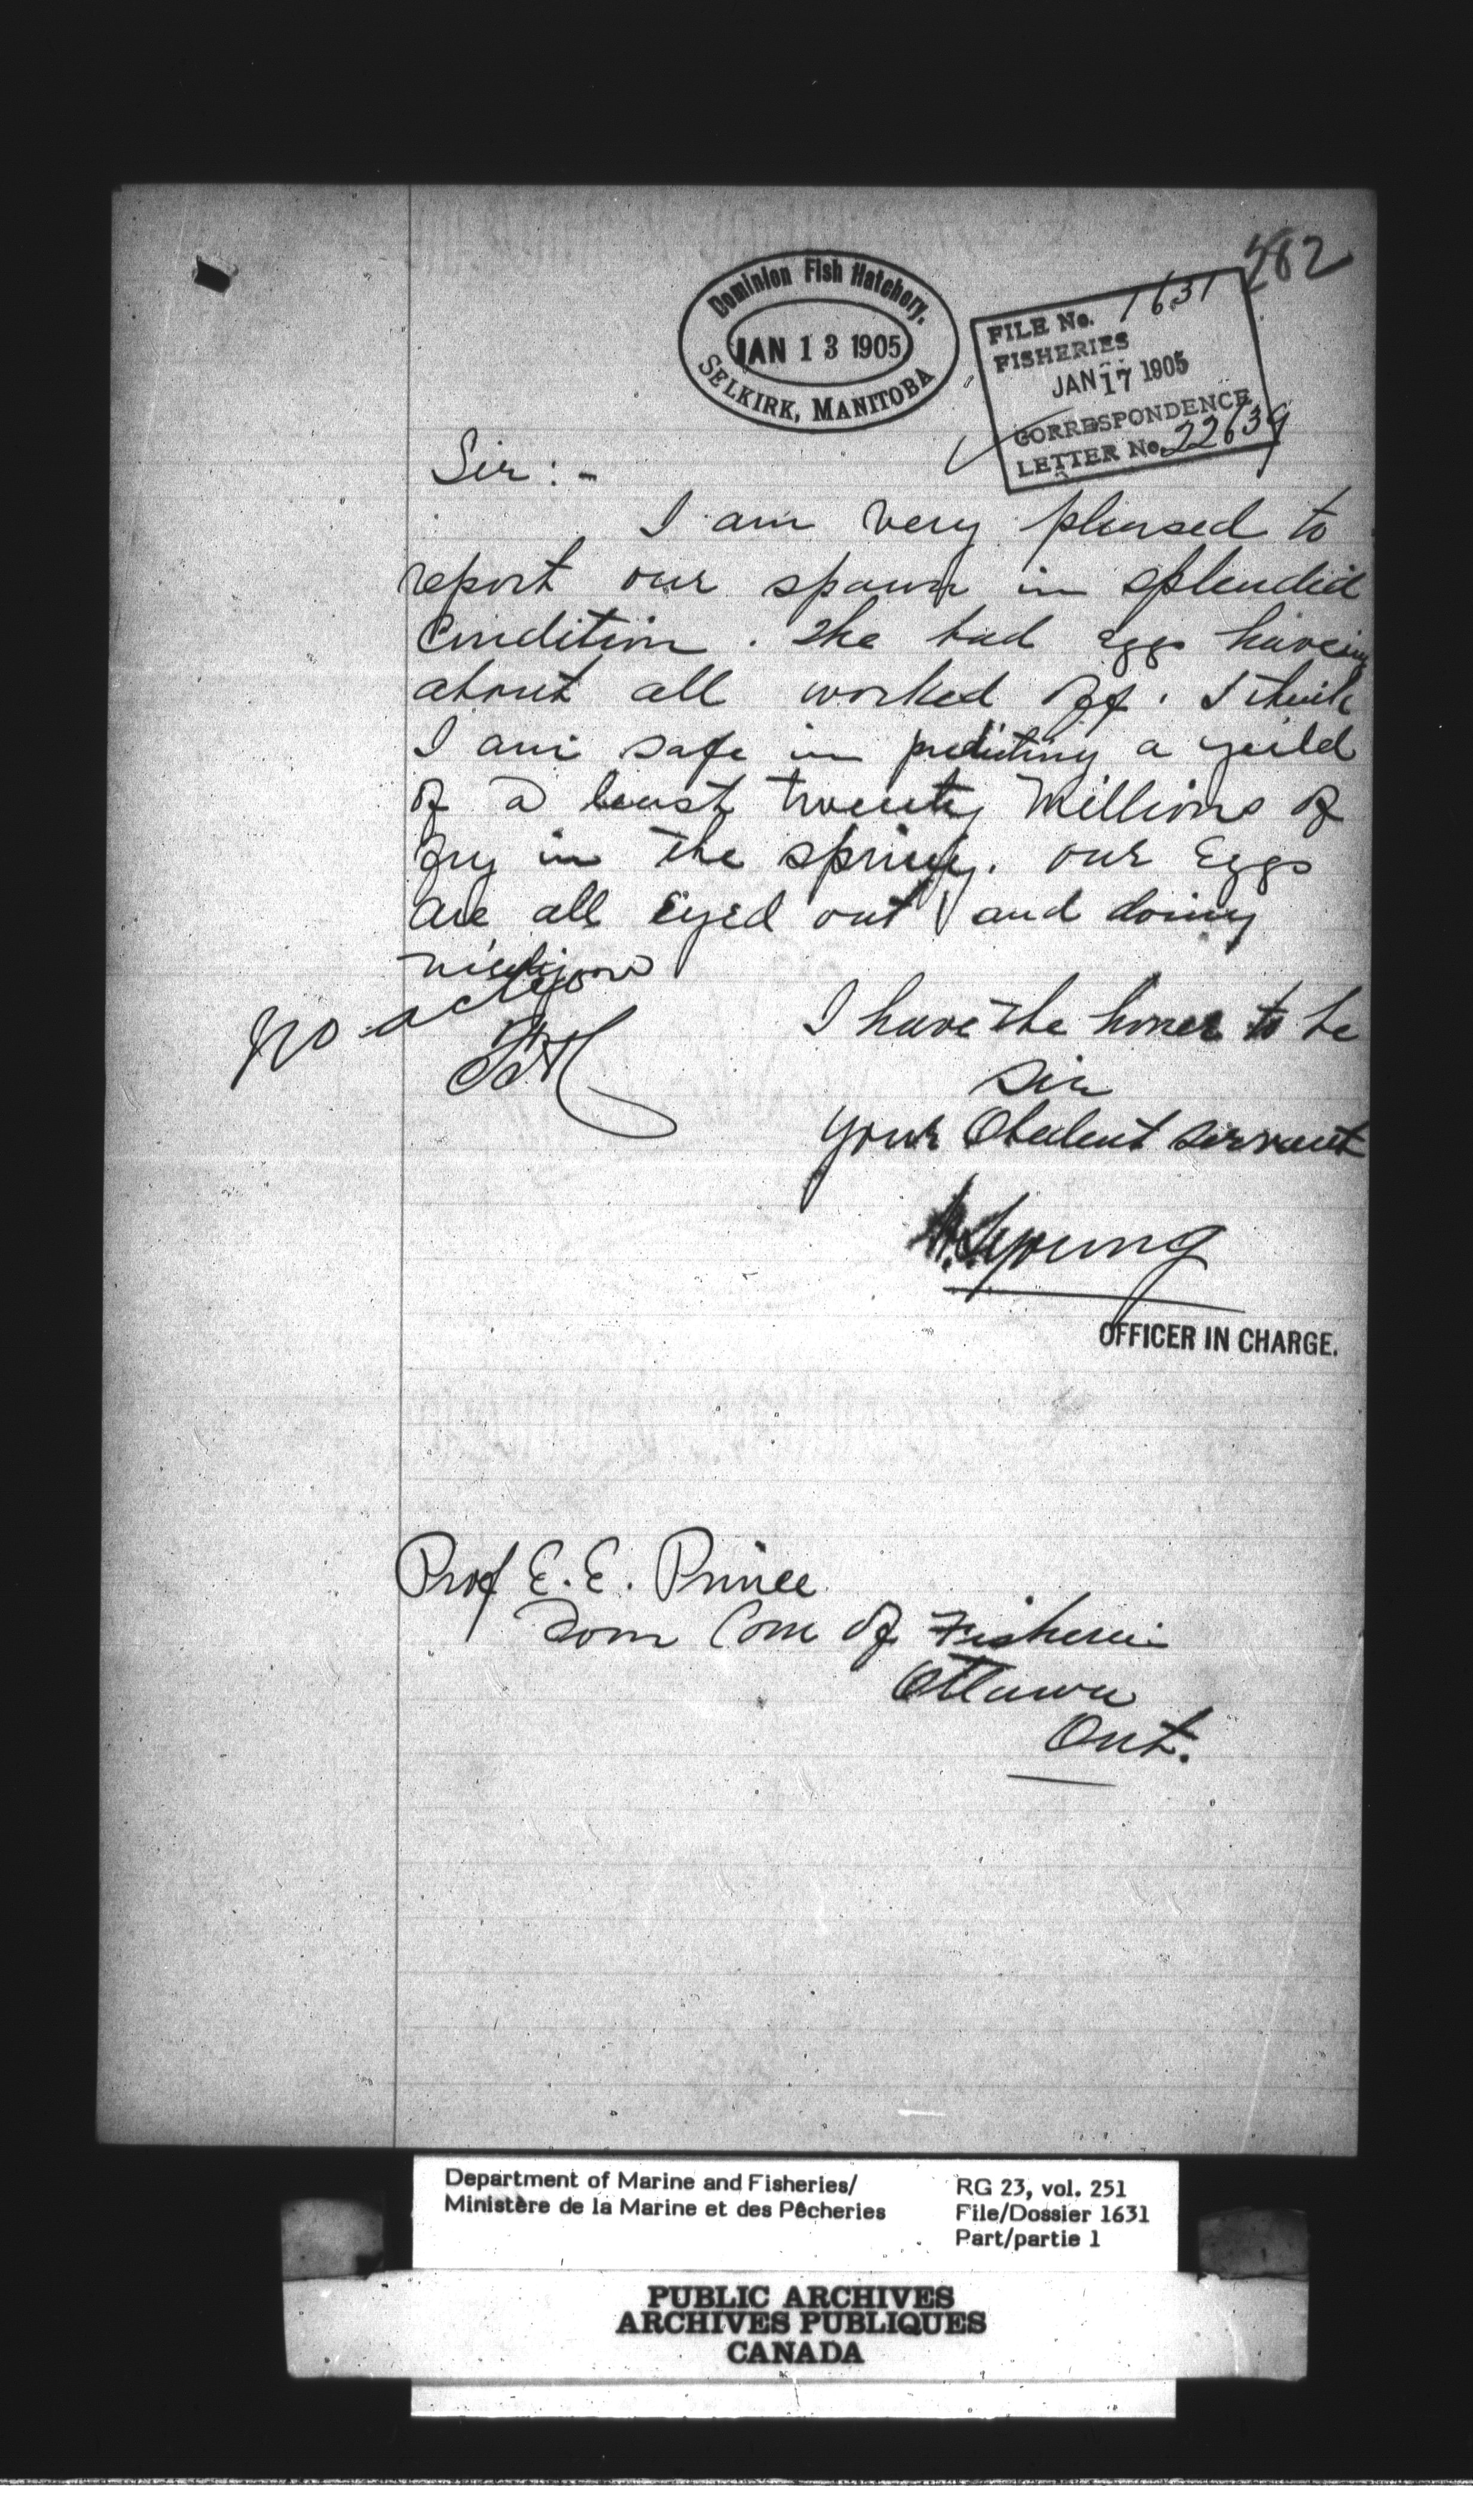 482
Dominion Fish Hatchery.
JAN 13 1905
SELKIRK, MANITOBA
FILE No. 1631
FISHERIES
JAN 17 1905
CORRESPONDENCE
LETTER No. 22639
Sir:-
I am very pleased to
report our spawn in splendid
Condition. The bad eggs having
about all worked off. I think
I am safe in predicting a yeild
of a least twenty millions of
fry in the spring. our Eggs
are all Eyed out and doing
nicely
no action
I have the honor to be
Sir
your Obedent servant
Young
OFFICER IN CHARGE.
Prof E. E. Prince
Dom Com of Fisheries
Ottawa
Ont.
Department of Marine and Fisheries/
Ministère de la Marine et des Pêcheries
RG 23, vol. 251
File/Dossier 1631
Part/partie 1
PUBLIC ARCHIVES
ARCHIVES PUBLIQUES
CANADA